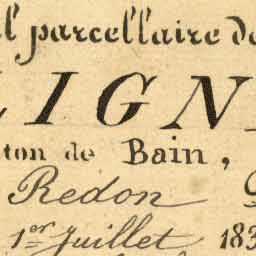 l parcellaire de
LIGN
ton de Bain,
Redon
1er Juillet 183